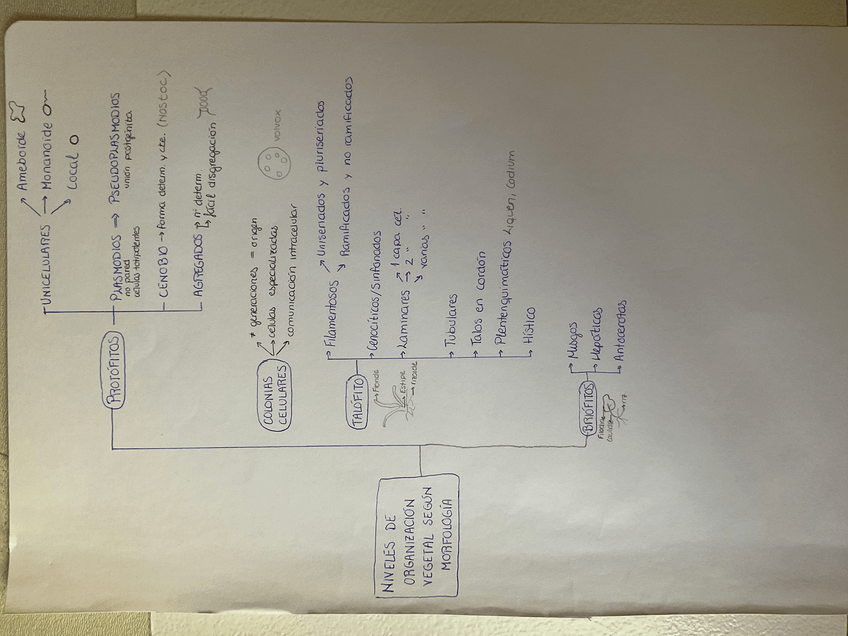 NIVELES DE
ORGANIZACIÓN
VEGETAL SEGÚN
MORFOLOGÍA
PROTÓFITOS
UNICELULARES
Ameboide
Monanoide
Cocal
PLASMODIOS → PSEUDOPLASMODIOS
no pared
células totipotentes
unión postgénita
CENOBIO → forma determ. y cte. (Nostoc)
AGREGADOS → nº determ.
fácil disgregación
COLONIAS
CELULARES
generaciones = origen
células especializadas
comunicación intracelular
VOLVOX
TALÓFITO
Fronde
Estipe
rizoide
Filamentosos
Uniseriados y pluriseriados
Ramificados y no ramificados
Cenocíticos/Sifonados
Laminares → 1 capa cel.
2 " "
varias " "
Tubulares
Talos en cordón
Plentenquimáticos Liquen, Codium
Hístico
BRIÓFITOS
Musgos
Hepáticas
Antocerotas